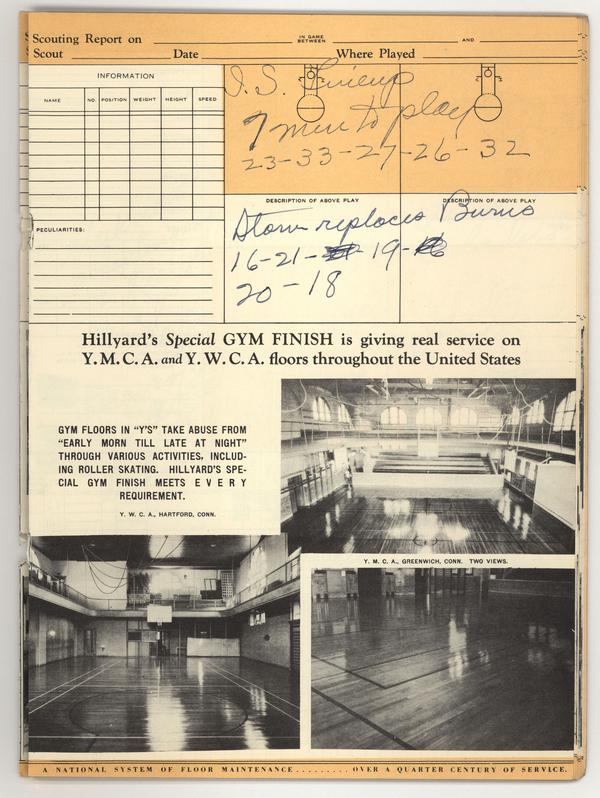 Scouting Report on IN GAME BETWEEN AND
Scout Date Where Played
INFORMATION
NAME NO. POSITION WEIGHT HEIGHT SPEED
I.S. Lineup
7 min to play
23-33-27-26-32
DESCRIPTION OF ABOVE PLAY DESCRIPTION OF ABOVE PLAY
PECULIARITIES:
Storm replaces Burns
16-21- -19-
20-18
Hillyard's Special GYM FINISH is giving real service on
Y.M.C.A. and Y.W.C.A. floors throughout the United States
GYM FLOORS IN "Y'S" TAKE ABUSE FROM
"EARLY MORN TILL LATE AT NIGHT"
THROUGH VARIOUS ACTIVITIES, INCLUD-
ING ROLLER SKATING. HILLYARD'S SPE-
CIAL GYM FINISH MEETS EVERY
REQUIREMENT.
Y. W. C. A., HARTFORD, CONN.
Y. M. C. A., GREENWICH, CONN. TWO VIEWS.
A NATIONAL SYSTEM OF FLOOR MAINTENANCE.........OVER A QUARTER CENTURY OF SERVICE.